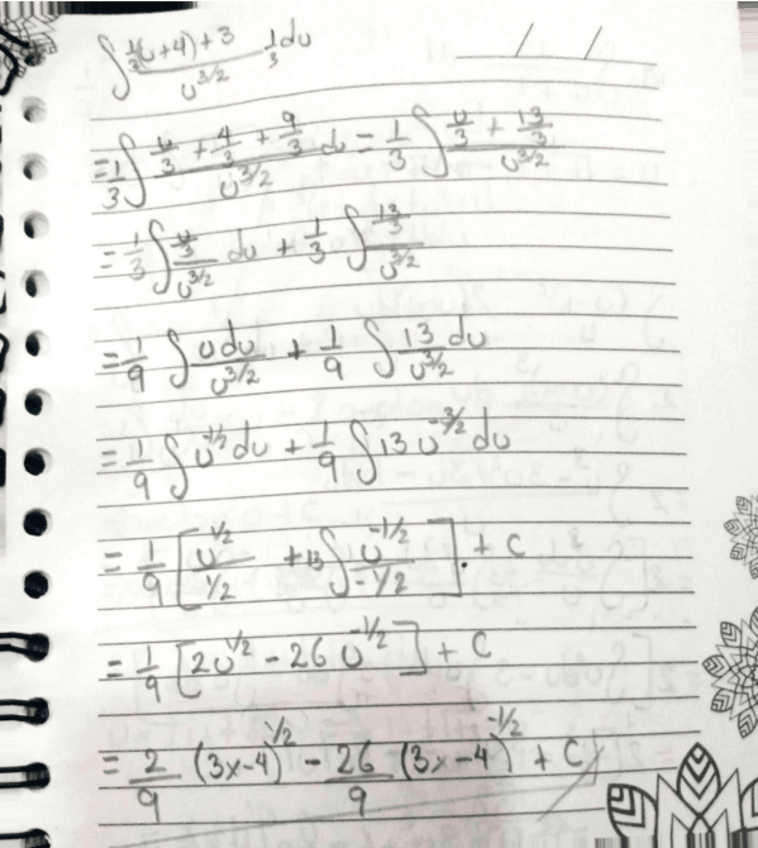 ∫ (1/3(u+4)+3)/u^(3/2) 1/3 du
= 1/3 ∫ (u/3 + 4/3 + 9/3)/u^(3/2) du = 1/3 ∫ (u/3 + 13/3)/u^(3/2)
= 1/3 ∫ (u/3)/u^(3/2) du + 1/3 ∫ (13/3)/u^(3/2)
= 1/9 ∫ u du/u^(3/2) + 1/9 ∫ 13 du/u^(3/2)
= 1/9 ∫ u^(-1/2) du + 1/9 ∫ 13 u^(-3/2) du
= 1/9 [ u^(1/2)/(1/2) + 13 ∫ u^(-1/2)/(-1/2) ] . + C
= 1/9 [2u^(1/2) - 26 u^(-1/2)] + C
= 2/9 (3x-4)^(1/2) - 26/9 (3x-4)^(-1/2) + C